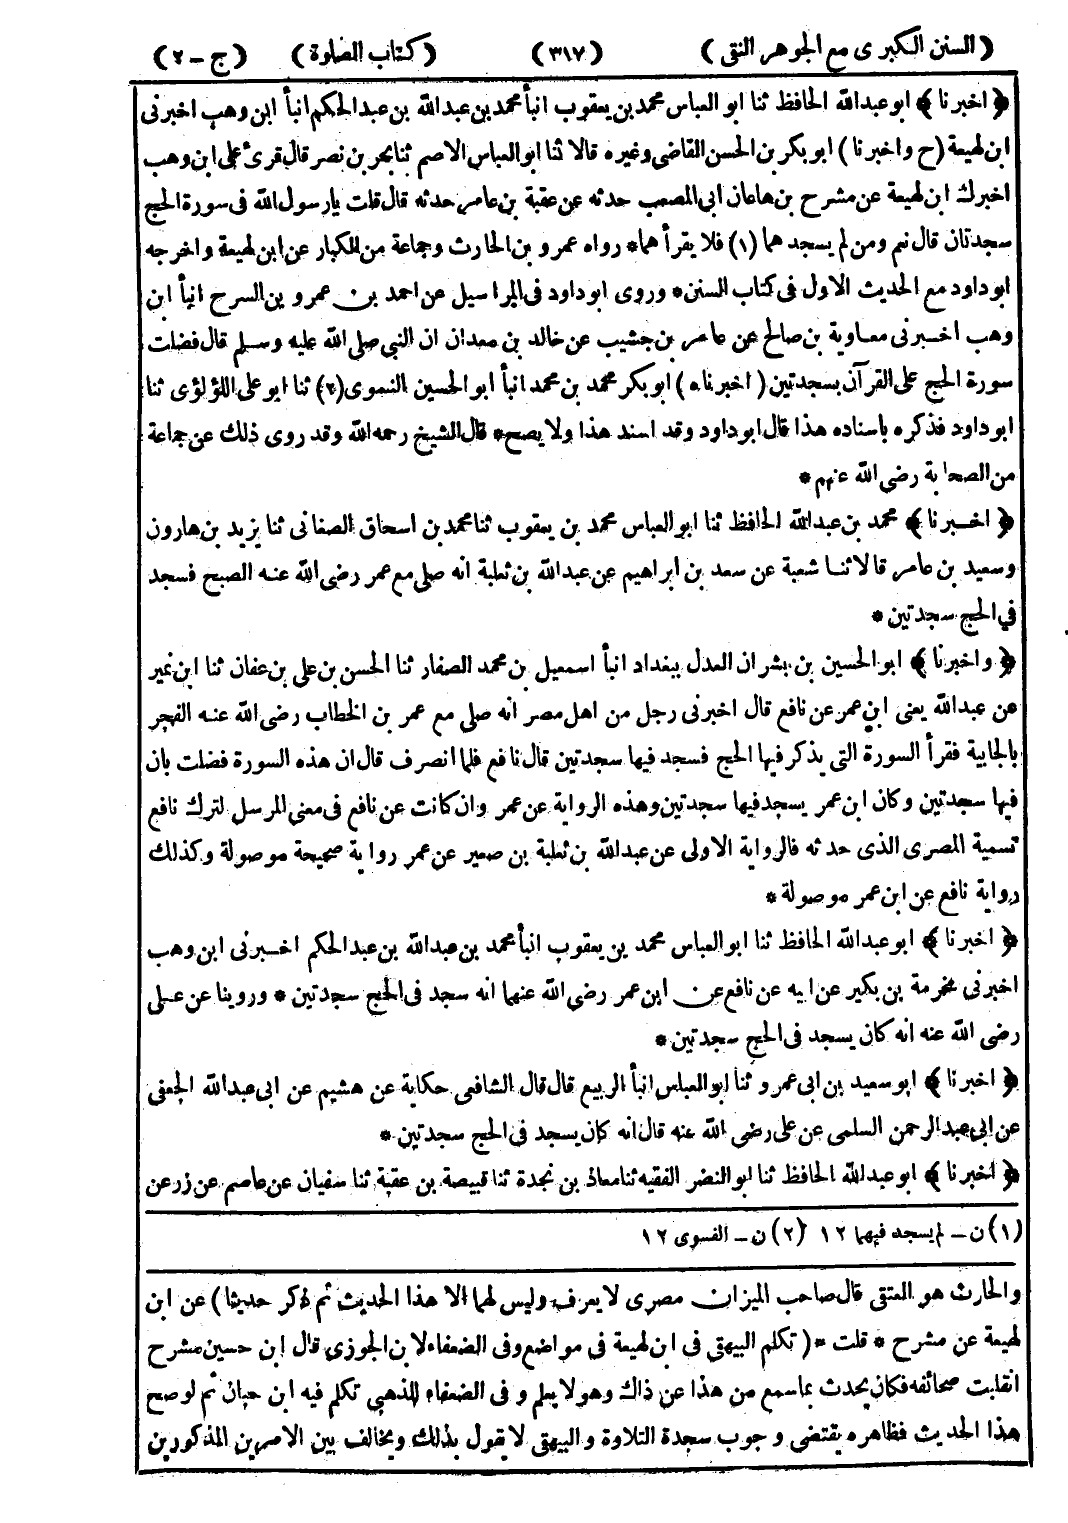 (السنن الكبرى مع الجوهر النقى) (٣١٧) (كتاب الصلوة) (ج - ٢)
﴿ اخبرنا ﴾ ابو عبدالله الحافظ ثنا ابو العباس محمد بن يعقوب انبأ محمد بن عبدالله بن عبد الحكم انبأ ابن وهب اخبرنى
ابن لهيعة (ح واخبرنا) ابو بكر بن الحسن القاضى وغيره قالا ثنا ابو العباس الاصم ثنا بحر بن نصر قال قرئ على ابن وهب
اخبرك ابن لهيعة عن مشرح بن هاعان ابى المصعب حدثه عن عقبة بن عامر حدثه قال قلت يارسول الله فى سورة الحج
سجدتان قال نعم ومن لم يسجد هما (١) فلا يقرأ هما* رواه عمرو بن الحارث وجماعة من الكبار عن ابن لهيعة واخرجه
ابو داود مع الحديث الاول فى كتاب السنن* وروى ابو داود فى المراسيل عن احمد بن عمرو بن السرح انبأ ابن
وهب اخبرنى معاوية بن صالح عن عامر بن جشيب عن خالد بن معدان ان النبى صلى الله عليه وسلم قال فضلت
سورة الحج على القرآن بسجدتين (اخبرناه) ابو بكر محمد بن محمد انبأ ابو الحسين النموى (٢) ثنا ابو على اللؤلؤى ثنا
ابو داود فذكره باسناده هذا قال ابو داود وقد اسند هذا ولا يصح* قال الشيخ رحمه الله وقد روى ذلك عن جماعة
من الصحابة رضى الله عنهم *
﴿ اخبرنا ﴾ محمد بن عبدالله الحافظ ثنا ابو العباس محمد بن يعقوب ثنا محمد بن اسحاق الصغانى ثنا يزيد بن هارون
وسعيد بن عامر قالا ثنا شعبة عن سعد بن ابراهيم عن عبدالله بن ثعلبة انه صلى مع عمر رضى الله عنه الصبح فسجد
في الحج سجدتين *
﴿ واخبرنا ﴾ ابو الحسين بن بشران العدل ببغداد انبأ اسمعيل بن محمد الصفار ثنا الحسن بن على بن عفان ثنا ابن نمير
عن عبدالله يعنى ابن عمر عن نافع قال اخبرنى رجل من اهل مصر انه صلى مع عمر بن الخطاب رضى الله عنه الفجر
بالجابية فقرأ السورة التى يذكر فيها الحج فسجد فيها سجدتين قال نافع فلما انصرف قال ان هذه السورة فضلت بان
فيها سجدتين وكان ابن عمر يسجد فيها سجدتين وهذه الرواية عن عمر وان كانت عن نافع فى معنى المرسل لترك نافع
تسمية المصرى الذى حدثه فالرواية الاولى عن عبدالله بن ثعلبة بن صعير عن عمر رواية صحيحة موصولة وكذلك
رواية نافع عن ابن عمر موصولة *
﴿ اخبرنا ﴾ ابو عبدالله الحافظ ثنا ابو العباس محمد بن يعقوب انبأ محمد بن عبدالله بن عبد الحكم اخبرنى ابن وهب
اخبرنى مخرمة بن بكير عن ابيه عن نافع عن ابن عمر رضى الله عنهما انه سجد فى الحج سجدتين * وروينا عن على
رضى الله عنه انه كان يسجد فى الحج سجدتين *
﴿ اخبرنا ﴾ ابو سعيد بن ابى عمرو ثنا ابو العباس انبأ الربيع قال قال الشافعى حكاية عن هشيم عن ابى عبدالله الجعفى
عن ابى عبد الرحمن السلمى عن على رضى الله عنه قال انه كان يسجد فى الحج سجدتين *
﴿ اخبرنا ﴾ ابو عبدالله الحافظ ثنا ابو النضر الفقيه ثنا معاذ بن نجدة ثنا قبيصة بن عقبة ثنا سفيان عن عاصم عن زر عن
(١) ن - لم يسجد فيهما ١٢ (٢) ن - الفسوى ١٢
والحارث هو العتقى قال صاحب الميزان مصرى لا يعرف وليس لهما الا هذا الحديث ثم ذكر حديثا) عن ابن
لهيعة عن مشرح * قلت *( تكلم البيهقى فى ابن لهيعة فى مواضع وفى الضعفاء لابن الجوزى قال ابن حسين مشرح
انقلبت صحائفه فكان يحدث بما سمع من هذا عن ذاك وهو لا يعلم وفى الضعفاء للذهبى تكلم فيه ابن حبان ثم لو صح
هذا الحديث فظاهره يقتضى وجوب سجدة التلاوة والبيهقى لا يقول بذلك ويخالف بين الامرين المذكورين